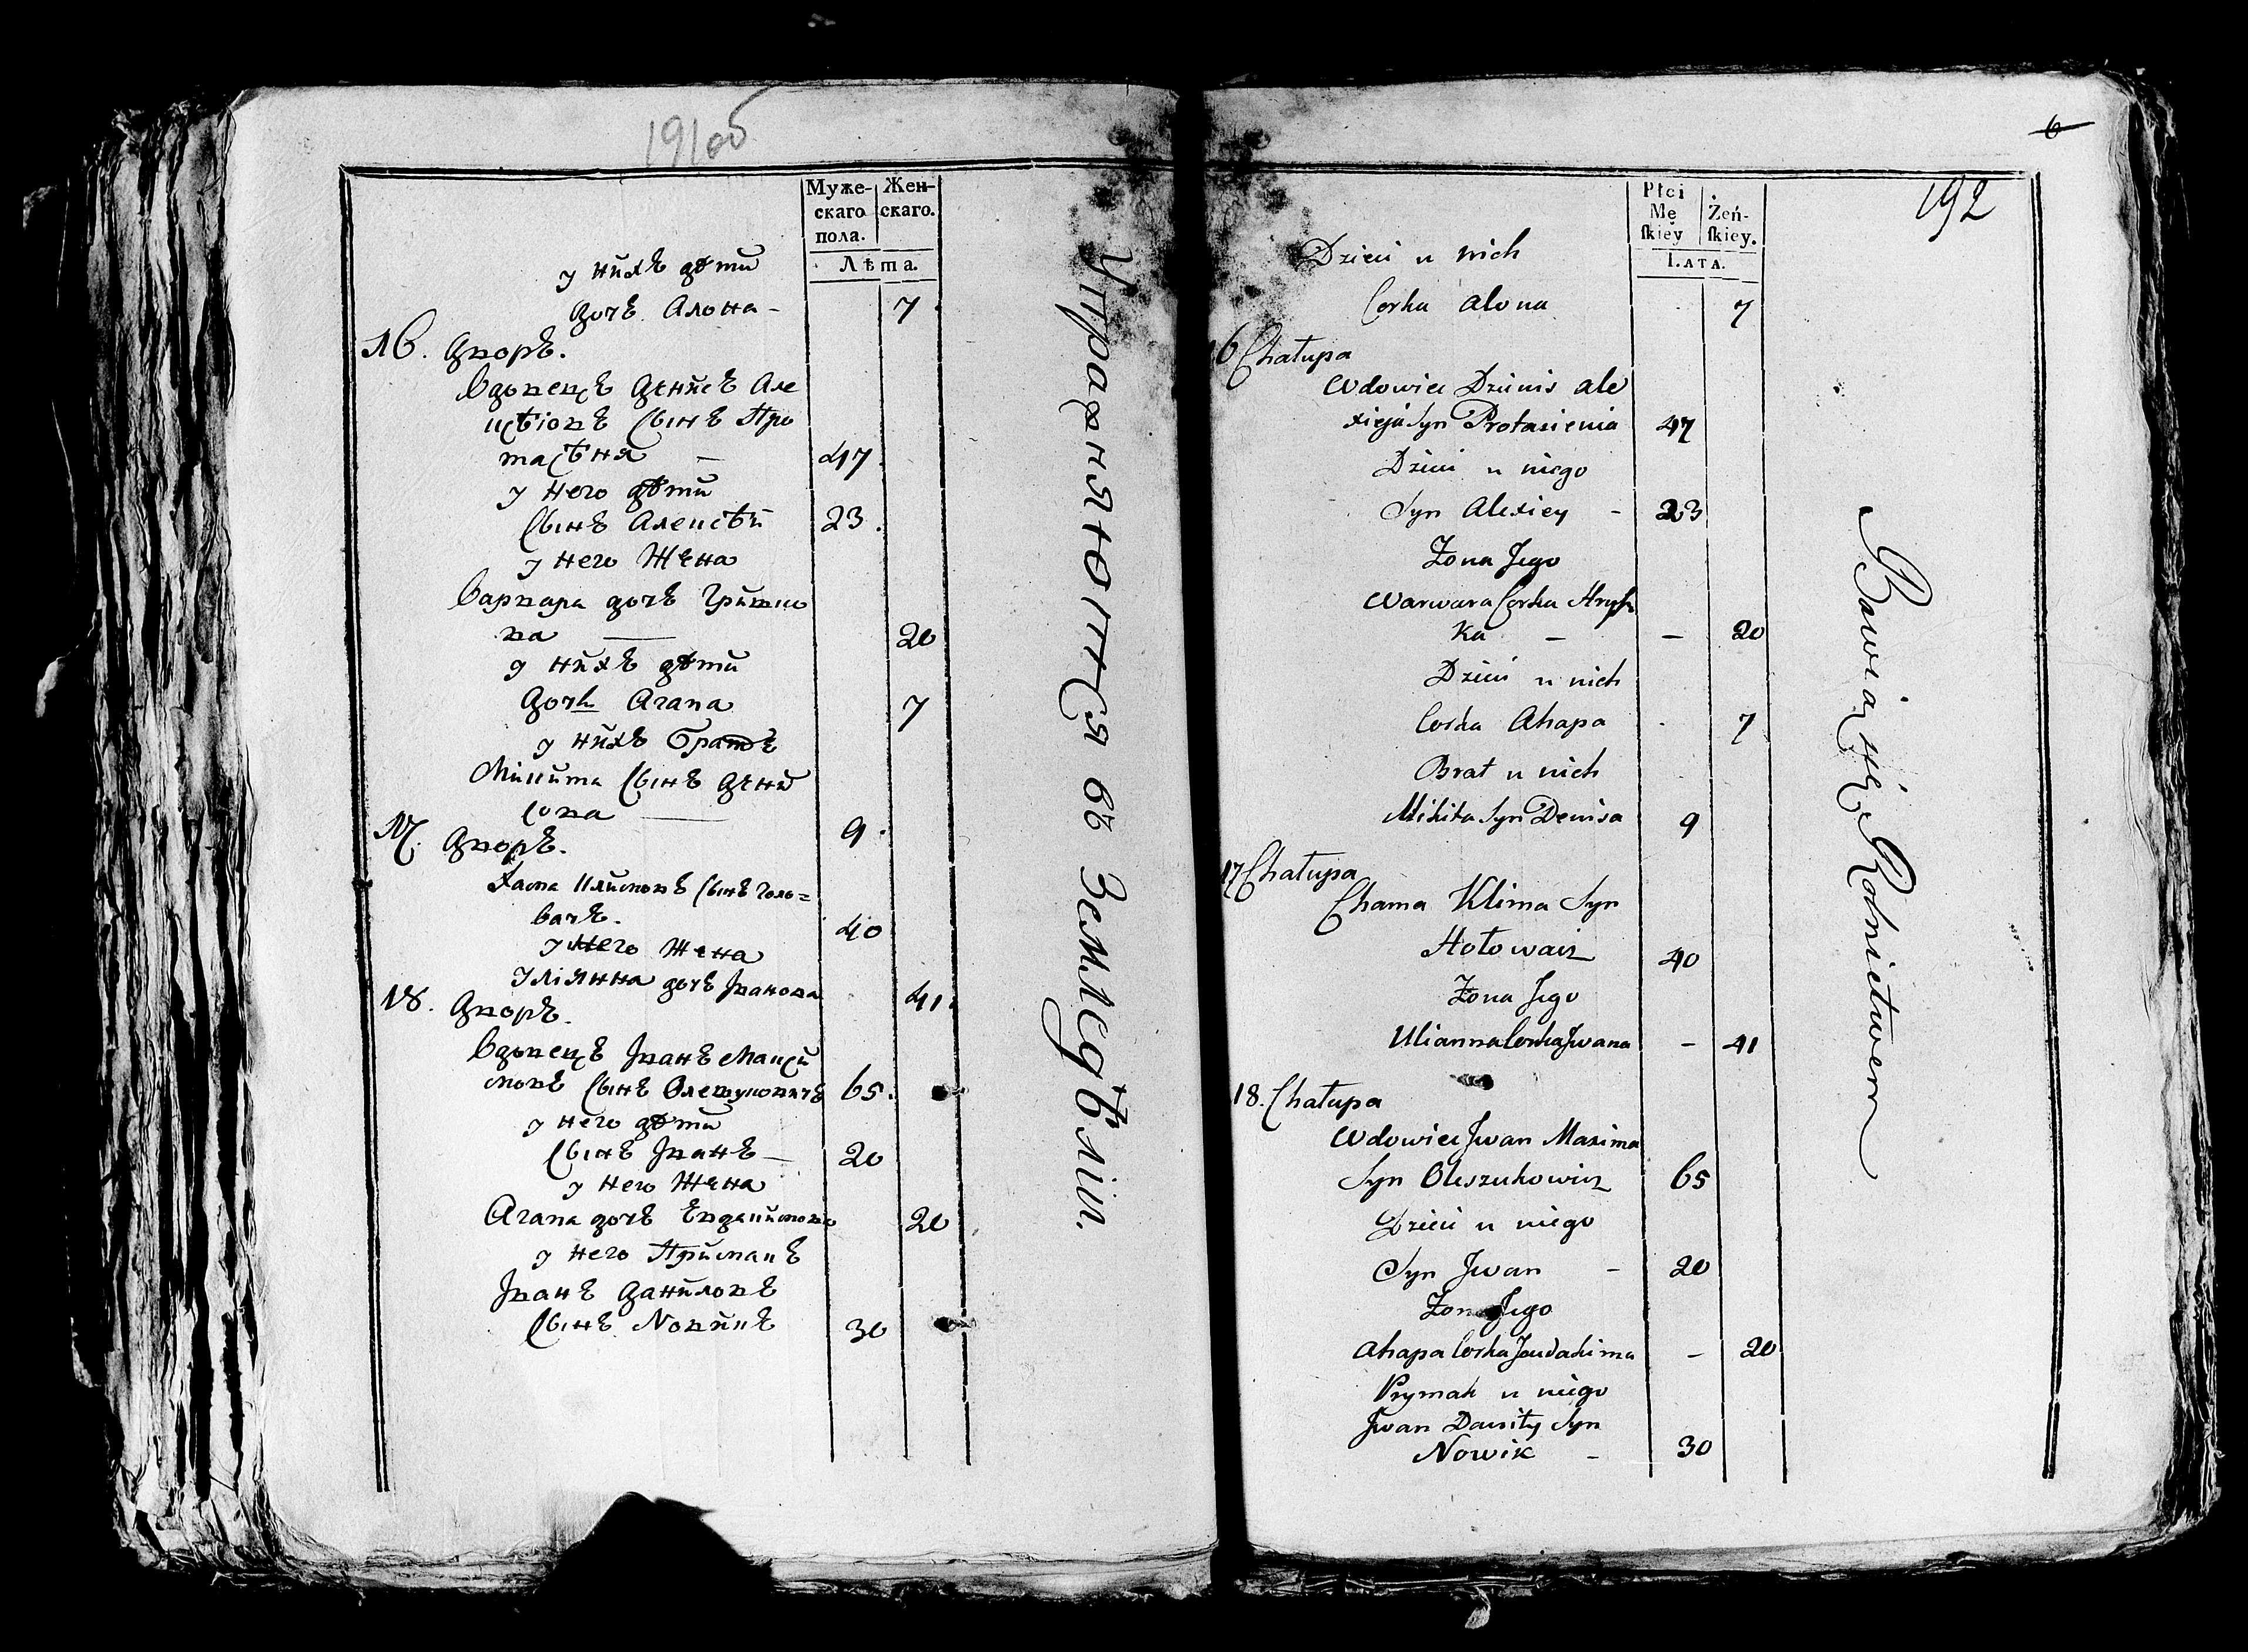 191об
Муже- Жен-
скаго скаго.
пола.
Лѣта.
у нихъ дѣти
дочъ Алона - 7
16. Дворъ.
Вдовецъ Денисъ Але
ксѣіовъ Сынъ Про
тасѣня - 47
у него дѣти
Сынъ Алексѣй 23.
у него Жена
Варвара дочъ Гришко
ва 20
у нихъ дѣти
Дочь Агапа 7
у нихъ братъ
Микита Сынъ Дени
сова 9.
17. Дворъ.
Хама Климовъ Сынъ Голо=
вачъ. 40
у него Жена
Уліянна дочъ Иванова 41.
18. Дворъ.
Вдовецъ Иванъ Макси
мовъ Сынъ Олешуковичъ 65.
у него дѣти
Сынъ Иванъ - 20
у него Жена
Агапа дочъ Евдакимова 20
у него Примакъ
Иванъ Даниловъ
Сынъ Новикъ 30
Упражняются въ Земледѣліи.
6
192
Płci
Mę Żeń-
skiey skiey.
LATA.
Dzieci u nich
Corka Alona 7
16 Chałupa
Wdowiec Dzienis Ale
xieja Syn Protasienia 47
Dzieci u niego
Syn Alexiey - 23
Żona Jego
Warwara Corka Hrysz
ka - - 20
Dzieci u nich
Corka Ahapa 7
Brat u nich
Mikita Syn Denisa 9
17 Chałupa
Chama Klima Syn
Hołowacz 40
Żona Jego
Ulianna Corka Jwana - 41
18. Chałupa
Wdowiec Jwan Maxima
Syn Oleszukowicz 65
Dzieci u niego
Syn Jwan - 20
Żona Jego
Ahapa Corka Jewdakima - 20
Prymak u niego
Jwan Daniły Syn
Nowik - 30
Bawią się Rolnictwem